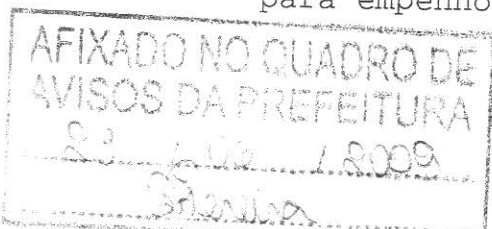 para empenho
AFIXADO NO QUADRO DE
AVISOS DA PREFEITURA
23 / / 2009